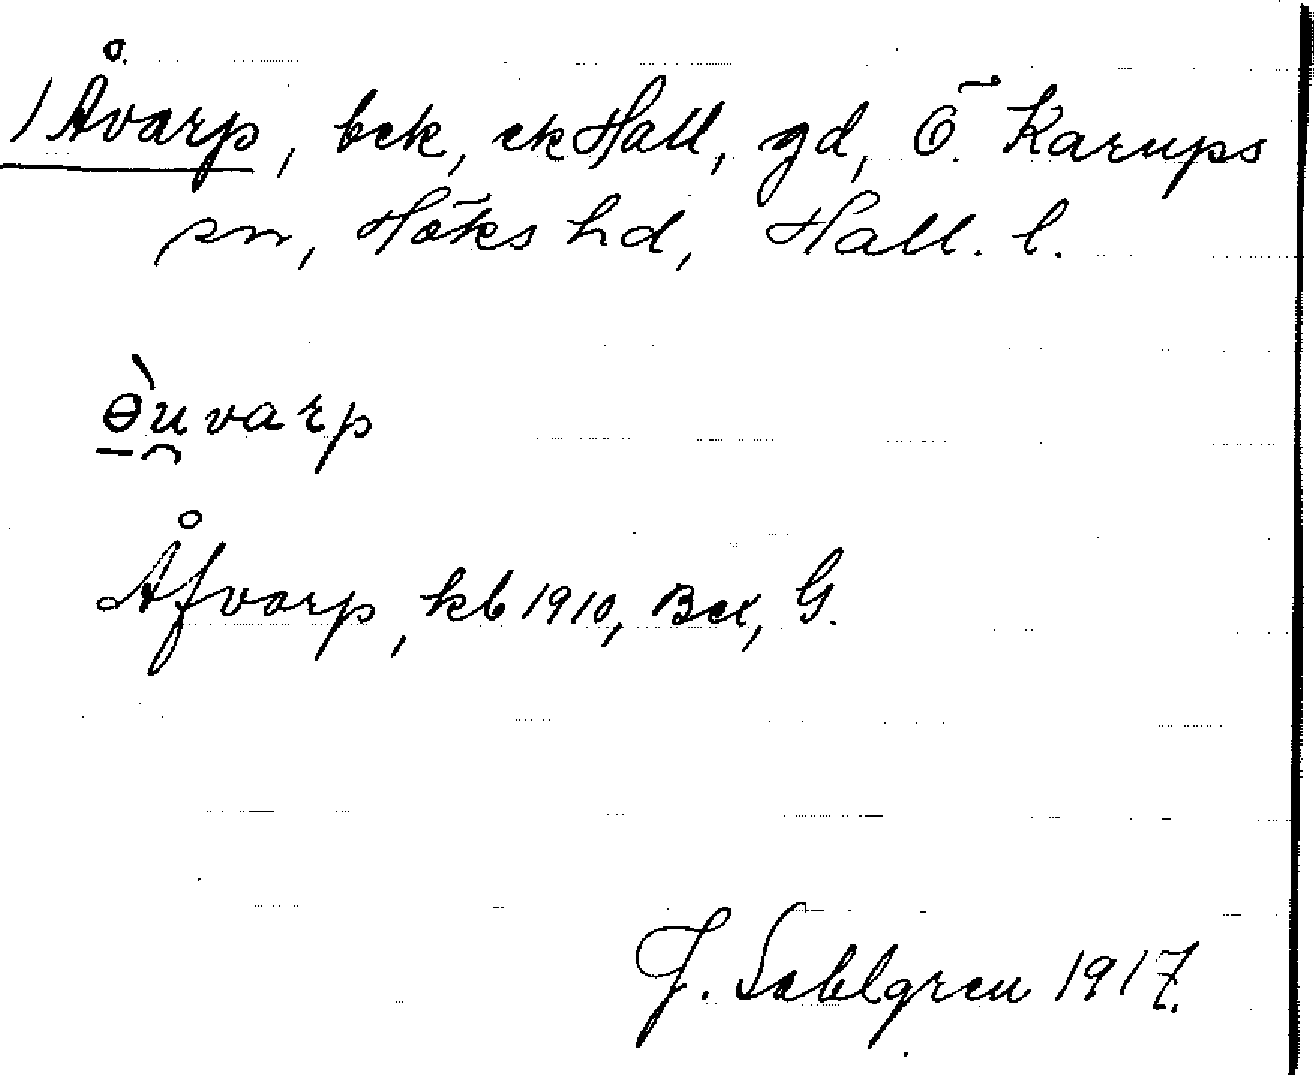 1 Åvarp, bck, ekHall, gd, Ö. Karups
sn, Höks hd, Hall. l.
ə̀u̯varp
Åfvarp, kb 1910, Bex, G.
J. Sahlgren 1917.